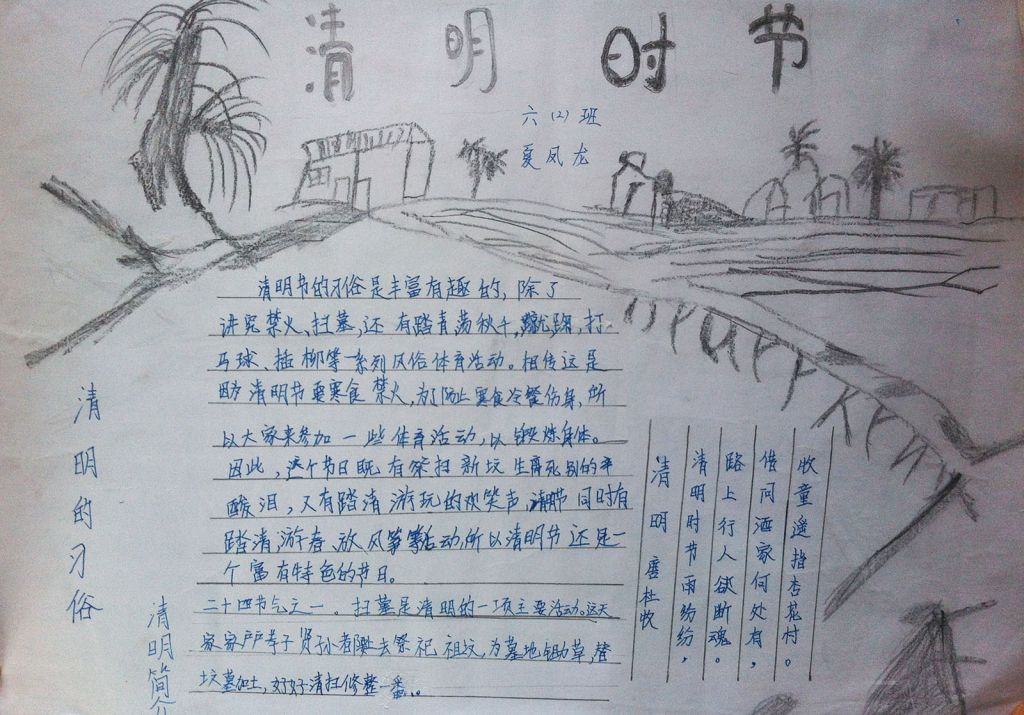 清明时节
六(2)班
夏凤龙
清明节的习俗是丰富有趣的,除了
讲究禁火、扫墓,还有踏青荡秋千,蹴踘,打
马球、插柳等一系列风俗体育活动。相传这是
因为清明节要寒食禁火,为了防止寒食冷餐伤身,所
以大家来参加一些体育活动,以锻炼身体。
因此,这个节日既有祭扫新坟生离死别的辛
酸泪,又有踏清游玩的欢笑声,清明节同时有
踏清,游春、放风筝等活动,所以清明节还是一
个富有特色的节日。
二十四节气之一。扫墓是清明的一项主要活动。这天
家家户户孝子贤孙都去祭祀祖坟,为墓地锄草,替
坟墓加土,好好清扫修整一番..
清明的习俗
清明简介
清明 唐杜牧
清明时节雨纷纷,
路上行人欲断魂。
借问酒家何处有,
牧童遥指杏花村。